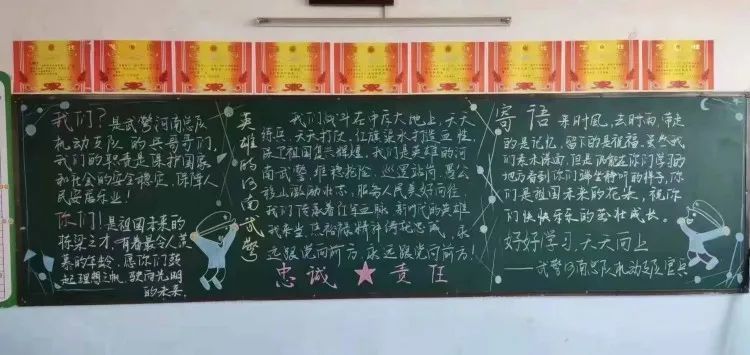 我们？是武警河南总队
机动支队的兵哥哥们，
我们的职责是保护国家
和社会的安全稳定，保障人
民安居乐业！
你们！是祖国未来的
栋梁之才，有着最令人羡
慕的年龄，愿你们鼓
起理想之帆，驶向光明
的未来。
英雄的河南武警
我们战斗在中原大地上，天天
练兵，天天打仗，红旗渠水打造血性，
保卫祖国复兴辉煌，我们是英雄的河
南武警，维稳抢险，巡逻站岗，愚公
移山激励壮志，服务人民美好向往
我们传承着红军血脉，新时代的英雄
我来当，焦裕禄精神铸就忠诚，永
远跟党向前方，永远跟党向前方！
忠诚★责任
寄语
来时风，去时雨，带走
的是记忆，留下的是祝福，虽然我
们素未谋面，但是
地方看到你们端坐静听的样子，你
们是祖国未来的花朵，祝你
们快快乐乐的茁壮成长。
好好学习，天天向上
——武警河南总队机动支队官兵